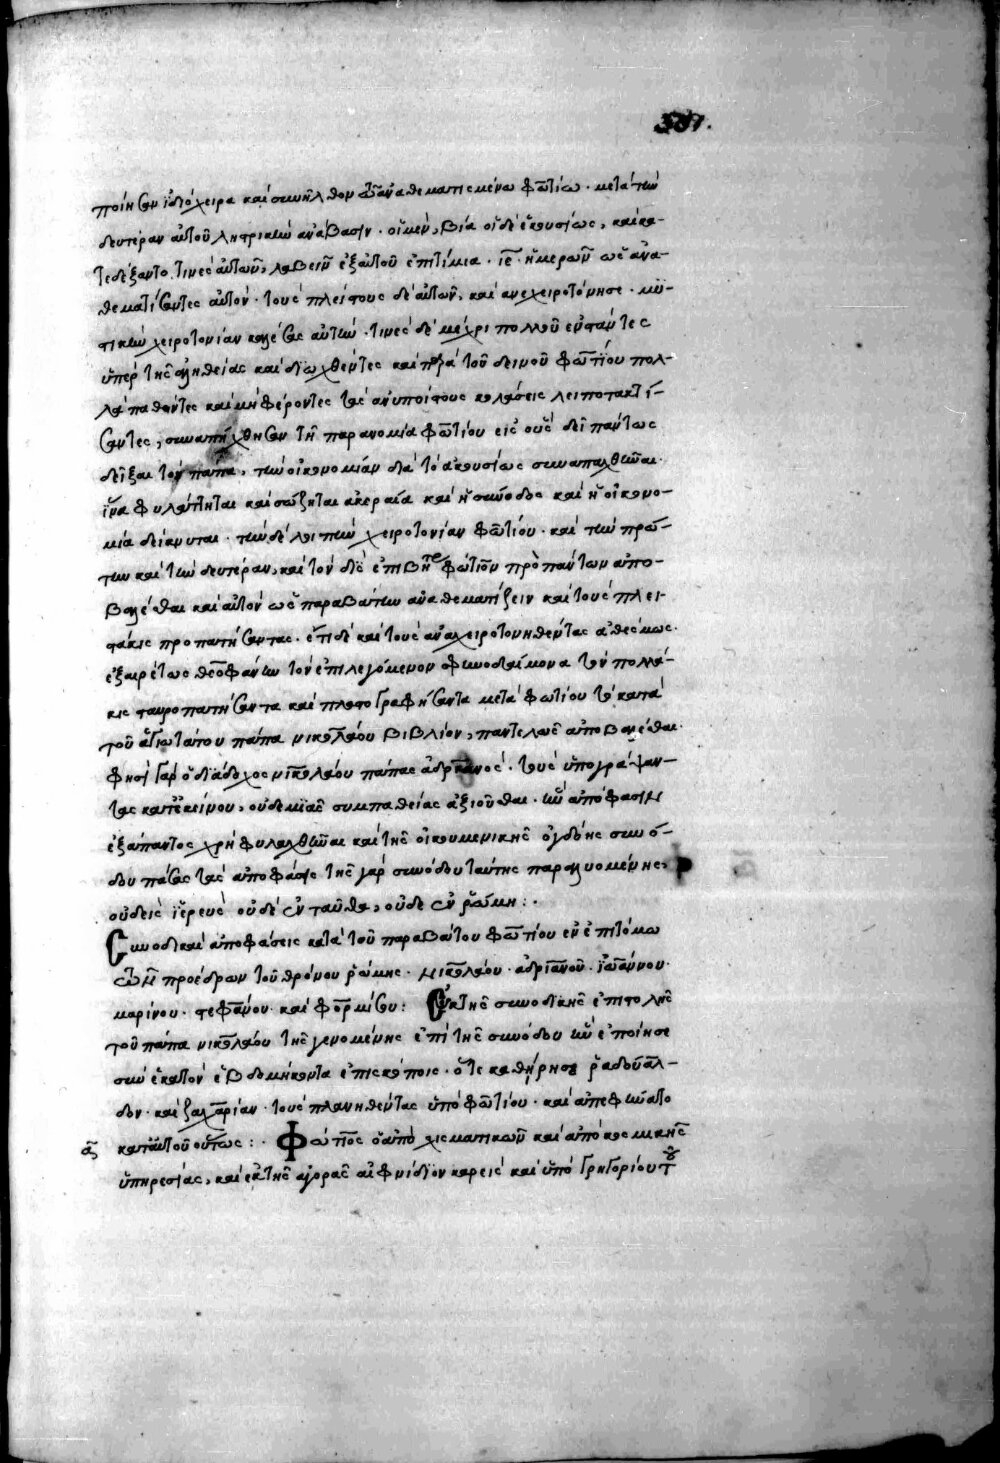 387.
ποίησαν ἰδιόχειρα καὶ συνῆλθον τῶ ἀναθεματισμένω φωτίω · μετὰ τὴν
δευτέραν αὐτοῦ ληστρικὴν ἀνάβασιν · οἱ μὲν, βία οἱ δὲ ἑκουσίως, καὶ κα-
τεδέξαντο τινὲς αὐτῶν, λαβεῖν ἐξ αὐτοῦ ἐπιτίμια · ιε · ἡμερῶν ὡς ἀνα-
θεματίσαντες αὐτόν · τοὺς πλείστους δὲ αὐτῶν, καὶ ἀνεχειροτόνησε · μυ-
στικὴν χειροτονίαν καλέσας αὐτήν · τινὲς δὲ μέχρι πολλοῦ ἐνστάντες
ὑπὲρ τῆς ἀληθείας καὶ διωχθέντες καὶ παρὰ τοῦ δεινοῦ φωτίου πολ-
λὰ παθόντες καὶ μὴ φέροντες τὰς ἀνυποίστους κολάσεις λειποτακτί-
σαντες, συναπήχθησαν τῆ παρανομία φωτίου εἰς οὓς δεῖ πάντως
δεῖξαι τὸν πάπα, τὴν οἰκονομίαν διὰ τὸ ἀκουσίως συναπαχθῆναι ·
ἵνα φυλάττηται καὶ σώζηται ἀκεραία καὶ ἡ σύνοδος καὶ ἡ οἰκονο-
μία δείκνυται · τὴν δὲ λοιπὴν χειροτονίαν φωτίου · καὶ τὴν πρώ-
την καὶ τὴν δευτέραν, καὶ τὸν δὶς ἐπιβήτορα φώτιον πρὸ πάντων ἀπο-
βαλέσθαι καὶ αὐτὸν ὡς παραβάτην ἀναθεματίζειν καὶ τοὺς πλει-
στάκις προπατήσαντας · ἔτι δὲ καὶ τοὺς ἀναχειροτονηθέντας ἀθέσμως ·
ἐξαιρέτως θεοφάνην τὸν ἐπιλεγόμενον φηνοδαίμονα τὸν πολλά-
κις σταυροπατήσαντα καὶ πλαστογραφήσαντα μετὰ φωτίου τὸ κατὰ
τοῦ ἁγιωτάτου πάπα νικολάου βιβλίον, παντελῶς ἀποβαλέσθαι ·
φησὶ γὰρ ὁ διάδοχος νικολάου πάπας ἀδριανός · τοὺς ὑπογράψαν-
τας κατ' ἐκείνου, οὐδεμιᾶς συμπαθείας ἀξιοῦσθαι · ἣν ἀπόφασιν
ἐξάπαντος χρὴ φυλαχθῆναι καὶ τῆς οἰκουμενικῆς ὀγδόης συνό-
δου πάσας τὰς ἀποφάσεις τῆς γὰρ συνόδου ταύτης παραλυομένης,
οὐδεὶς ἱερεὺς οὐδὲ ἐνταῦθα, οὐδὲ ἐν ῥώμη : ·
Συνοδικαὶ ἀποφάσεις κατὰ τοῦ παραβάτου φωτίου ἐν ἐπιτόμω
τῶν προέδρων τοῦ θρόνου ῥώμης · νικολάου · ἀδριανοῦ · ἰωάννου ·
μαρίνου · στεφάνου · καὶ φορμόσου : Ἐκ τῆς συνοδικῆς ἐπιστολῆς
τοῦ πάπα νικολάου τῆς γενομένης ἐπὶ τῆς συνόδου ἣν ἐποίησε
σὺν ἑκατὸν ἑβδομήκοντα ἐπισκόποις · ὅτε καθήρησε ῥαδοάλ-
δον · καὶ ζαχαρίαν · τοὺς πλανηθέντας ὑπὸ φωτίου · καὶ ἀπεφήνατο
κατ' αὐτοῦ οὕτως : · Φώτιος ὁ ἀπὸ σχισματικῶν καὶ ἀπὸ κοσμικῆς
ὑπηρεσίας, καὶ ἐκ τῆς ἀγορᾶς αἰφνίδιον καρεὶς καὶ ὑπὸ γρηγορίου τοῦ